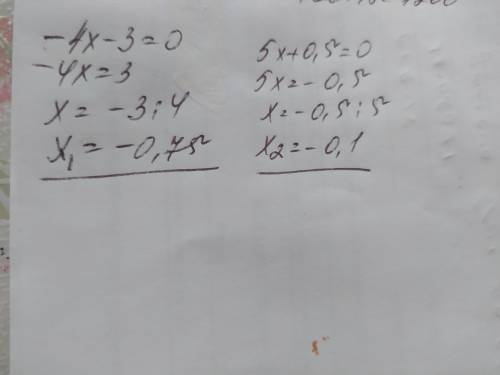 -4x-3=0
-4x=3
x= -3:4
x₁= -0,75
5x+0,5=0
5x=-0,5
x=-0,5:5
x₂=-0,1